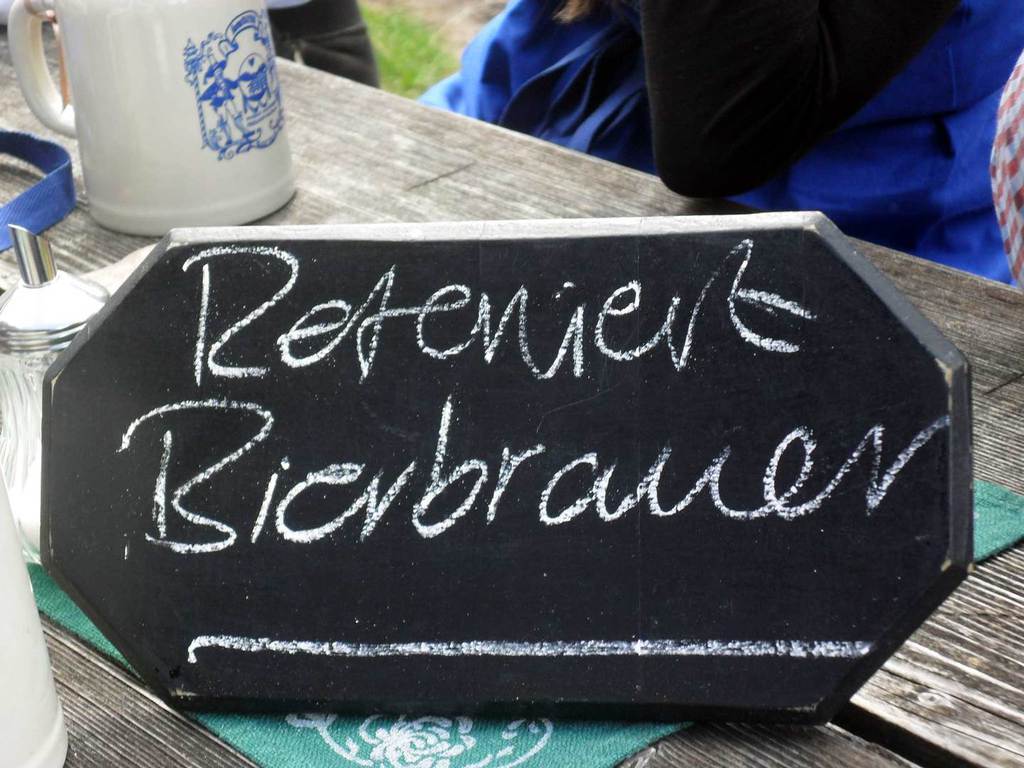 Reserviert
Bierbrauer